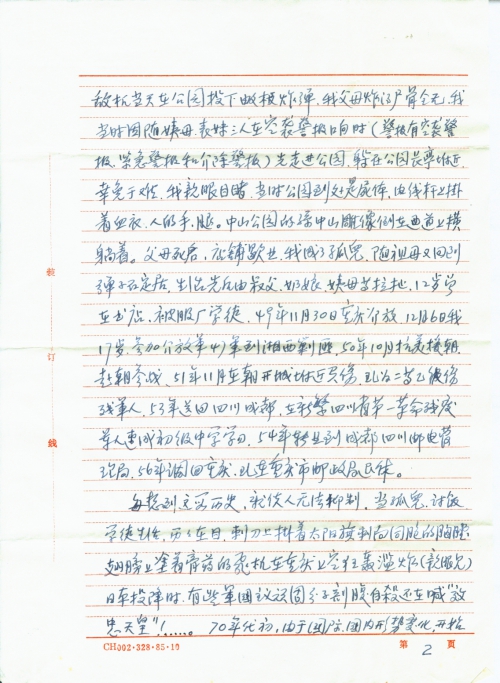 敌机当天在公园投下数枚炸弹，我父母炸得尸骨全无，我
当时因随姨母、表妹三人在空袭警报响时（警报有空袭警
报、紧急警报和介除警报）先走进公园，躲在公园长亭附近
幸免于难，我亲眼目睹，当时公园到处是尸体，电线杆上挂
着血衣、人的手、腿。中山公园的孙中山雕像倒在血道上横
躺着。父母死后，店铺歇业，我成了孤儿，随祖母又回到
弹子石定居，生活先后由叔父、奶娘、姨母等拉扯，12岁学
在书店、被服厂学徒，49年11月30日重庆介放，12月6日我
17岁参加介放军47军到湘西剿匪，50年10月抗美援朝
赴朝参战，51年11月在朝开城附近负伤，定为二等乙级伤
残军人，53年送回四川成都，在新繁四川省第一革命残废
军人速成初级中学学习，54年转业到成都四川邮电管
理局，56年调回重庆，现在重庆市邮政局退休。
每想到这页历史，就使人无法抑制，当孤儿、讨饭
学徒生活，历历在目，刺刀上挂着太阳旗刺向同胞的胸膛
翅膀上涂着膏药的飞机在重庆上空狂轰滥炸（亲眼见）
日军投降时，有些军国主义顽固分子剖腹自杀还在喊"效
忠天皇"！……。70年代初，由于国际、国内形势变化，开始
装
订
线
CH002·328·85·10
第 2 页